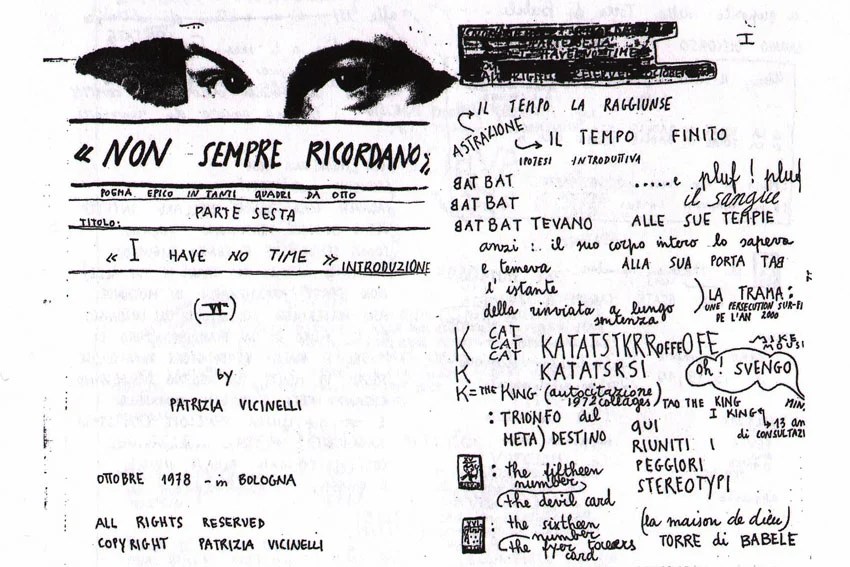 « NON SEMPRE RICORDANO »
POEMA EPICO IN TANTI QUADRI DA OTTO
PARTE SESTA
TITOLO:
« I HAVE NO TIME » INTRODUZIONE
(VI)
by
PATRIZIA VICINELLI
OTTOBRE 1978 - in BOLOGNA
ALL RIGHTS RESERVED
COPYRIGHT PATRIZIA VICINELLI
I
IL TEMPO LA RAGGIUNSE
ASTRAZIONE
IL TEMPO FINITO
IPOTESI INTRODUTTIVA
BAT BAT .....e pluf! pluf
BAT BAT il sangue
BAT BAT TEVANO ALLE SUE TEMPIE
anzi :. il suo corpo intero lo sapeva
e temeva ALLA SUA PORTA TAB
l'istante
della rinviata a lungo
sentenza!
) LA TRAMA:
UNE PERSECUTION SUR-FI
DE L'AN 2000
K CAT
CAT
CAT
KATATSTKRROFFEOFFE
K KATATSRSI
oh! SVENGO
K= THE KING (autocitazione)
1972 collages
TAO THE KING
I KING
13 an
di CONSULTAZI
MIN.
: TRIONFO del
META) DESTINO
QUI
RIUNITI I
PEGGIORI
STEREOTYPI
: the fiftheen
number
(the devil card
: the sixtheen
number
(the fyer towers
card
(la maison de dieu)
TORRE di BABELE